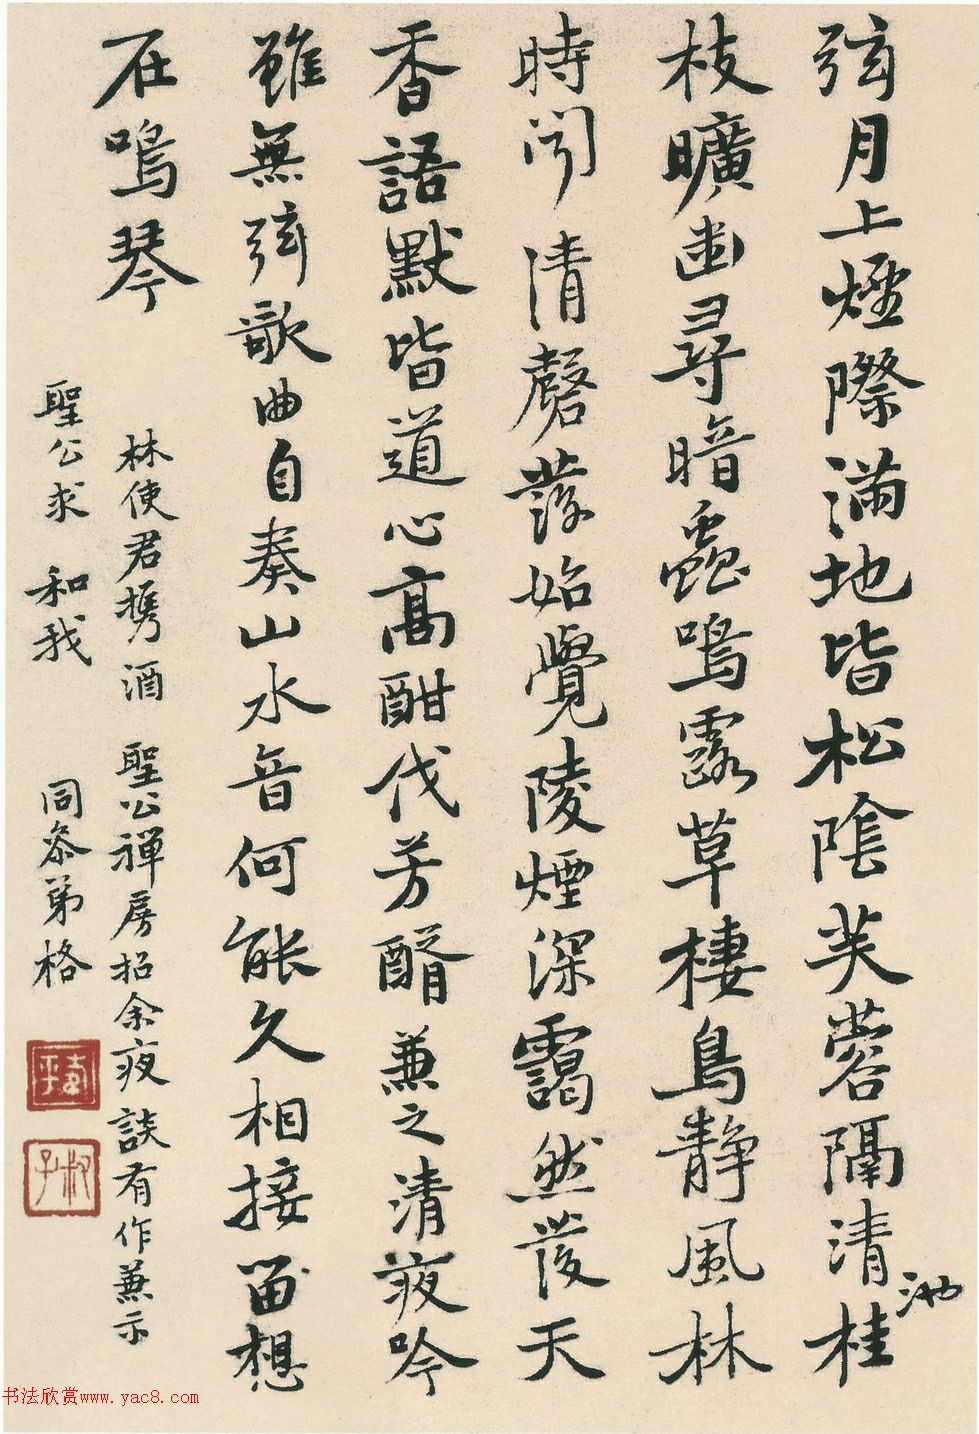 弦月上煙際滿地皆松陰芙蓉隔清池桂
枝曠幽尋暗蟲鳴露草棲鳥靜風林
時聞清磬發始覺陵煙深靄然發天
香語默皆道心高酣代芳醑兼之清夜吟
雖無弦歌曲自奏山水音何能久相接留想
在鳴琴
林使君携酒 聖公禪房招余夜談有作兼示
聖公求 和我
同叅弟格
叔子
书法欣赏www.yac8.com